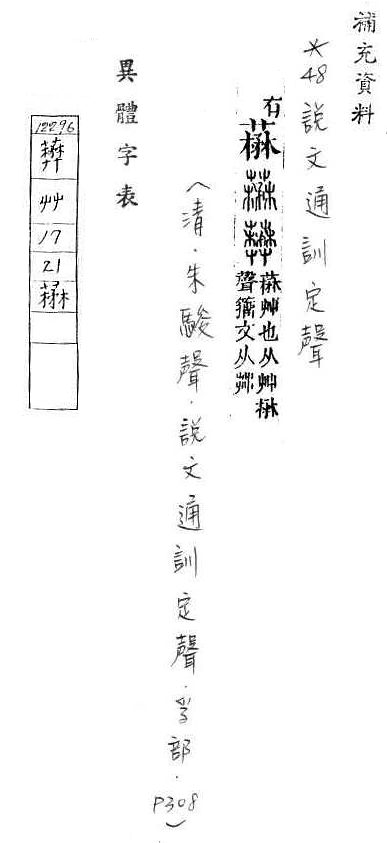 補充資料
*48說文通訓定聲
有
艸也从艸
聲籒文从茻
(清.朱駿聲.說文通訓定聲.孚部.P308)
異體字表
12296
艸
17
21